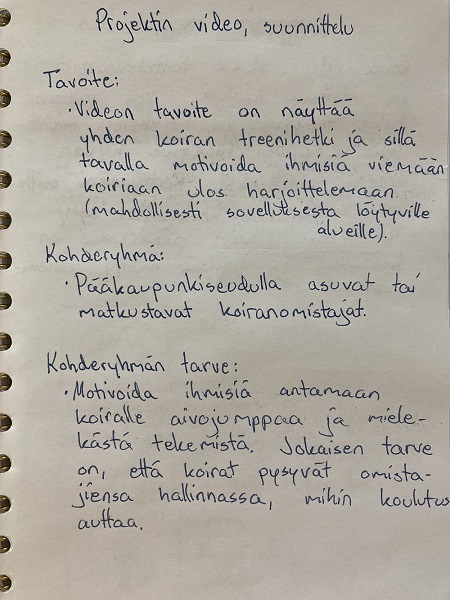 Projektin video, suunnittelu
Tavoite:
· Videon tavoite on näyttää
yhden koiran treenihetki ja sillä
tavalla motivoida ihmisiä viemään
koiriaan ulos harjoittelemaan
(mahdollisesti sovelluksesta löytyville
alueille).
Kohderyhmä:
· Pääkaupunkiseudulla asuvat tai
matkustavat koiranomistajat.
Kohderyhmän tarve:
· Motivoida ihmisiä antamaan
koiralle aivojumppaa ja miele-
kästä tekemistä. Jokaisen tarve
on, että koirat pysyvät omista-
jiensa hallinnassa, mihin koulutus
auttaa.